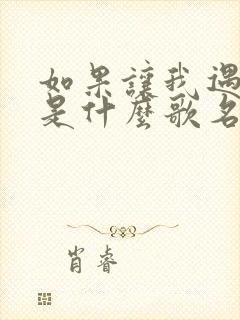 如果讓我遇
是什麼歌名
肖睿